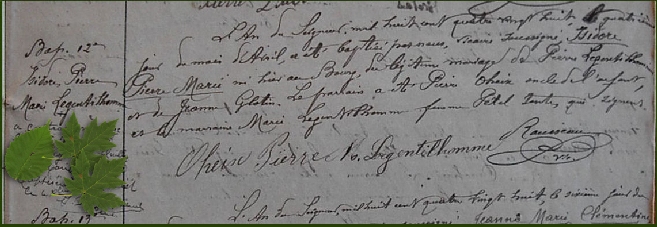 Bap. 12e
Isidore, Pierre
Marie Legentilhomme
L'An du Seigneur, mil huit cent quatre vingt huit, le quatrième
jour du mois d'Avril, a été baptisé par nous, Vicaire soussigné, Isidore
Pierre Marie né hier au Bourg, du légitime mariage de Pierre Legentilhomme
et de Jeanne Glotin. Le parrain a été Pierre Oheix oncle de l'enfant,
et la marraine Marie Legentilhomme femme Pétel tante, qui signent.
Oheix Pierre M. Legentilhomme
Rousseau
vic.
Bap. 13e
L'An du Seigneur, mil huit cent quatre vingt huit, le sixième jour du
Jeanne Marie Clémentine